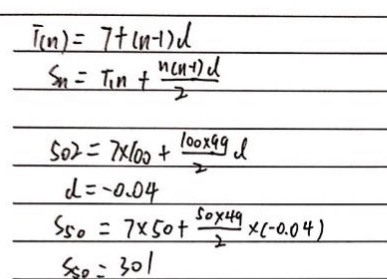 T(n) = 7+(n-1)d
Sn = T₁n + n(n-1)d/2
502 = 7×100 + 100×99/2 d
d = -0.04
S₅₀ = 7×50 + 50×49/2 ×(-0.04)
S₅₀ = 301